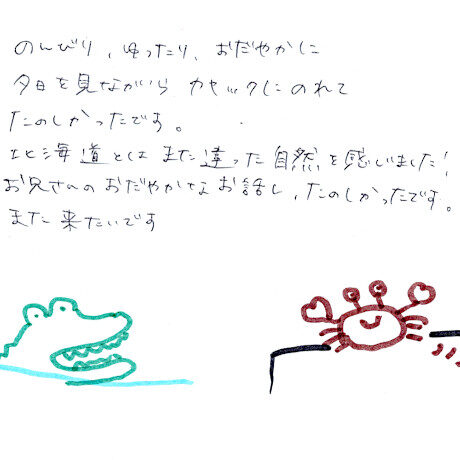 のんびり、ゆったり、おだやかに
夕日を見ながら カヤックにのれて
たのしかったです。
北海道とは また違った自然を感じました!
お兄さんのおだやかなお話し、たのしかったです。
また来たいです